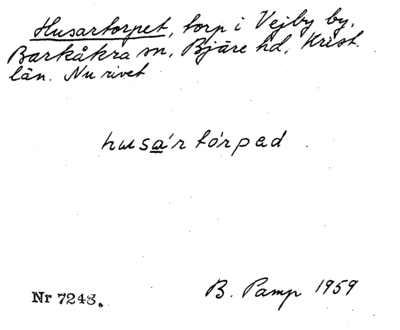 Husartorpet, torp i Vejby by,
Barkåkra sn, Bjäre hd, Krist.
län. Nu rivet
husa´r tórpad
Nr 7248.
B. Pamp 1959